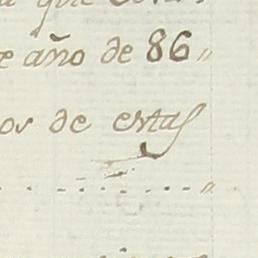 que
año de 86
os de estas